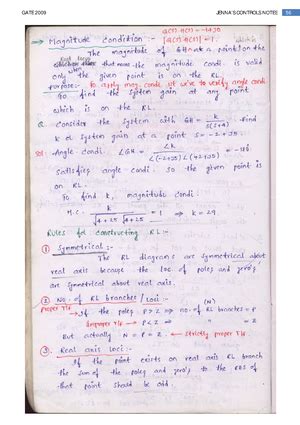 GATE 2009 JENNA'S CONTROLS NOTES 56
G(s).H(s) = -1+j0
→ Magnitude condition :- |G(s).H(s)| = 1
The magnitude of GH at a point on the
Root locus
that means the magnitude condi. is valid
only when the given point is on the RL.
purpose:- To apply mag. conde. we've to verify angle condi
To find the system gain at any point
which is on the RL.
Q. Consider the system with GH = k / s(s+4) . find
k of system gain at a point s = -2+j5.
Sol. Angle condi. ∠GH = ∠k / ∠(-2+j5) ∠(+2+j5) = -180.
Satisfies angle condi. So the given point is
on RL.
To find k, magnitude condi.
M.C. k / √4+25 √4+25 = 1 ⇒ k = 29.
Rules for constructing RL :-
① Symmetrical :-
The RL diagrams are symmetrical about
real axis because the loc of poles and zero's
are symmetrical about real axis.
② No. of RL branches / Loci :- (N)
Proper T/F → If the poles, P > Z ⇒ no. of RL branches = P
Improper T/F → P < Z ⇒ " = Z
But actually N = P = Z. ← Strictly proper T/F.
③. Real axis loci :-
If the point exists on real axis RL branch
the sum of the poles and zero's to the RHS of
that point should be odd.